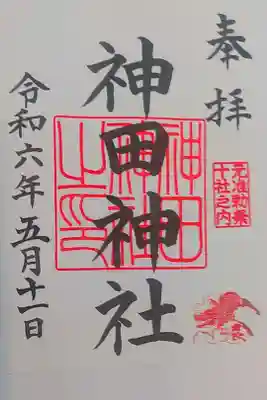 奉拝
元准勅祭
十社之内
神田神社
神田
神社
之印
令和六年五月十一日